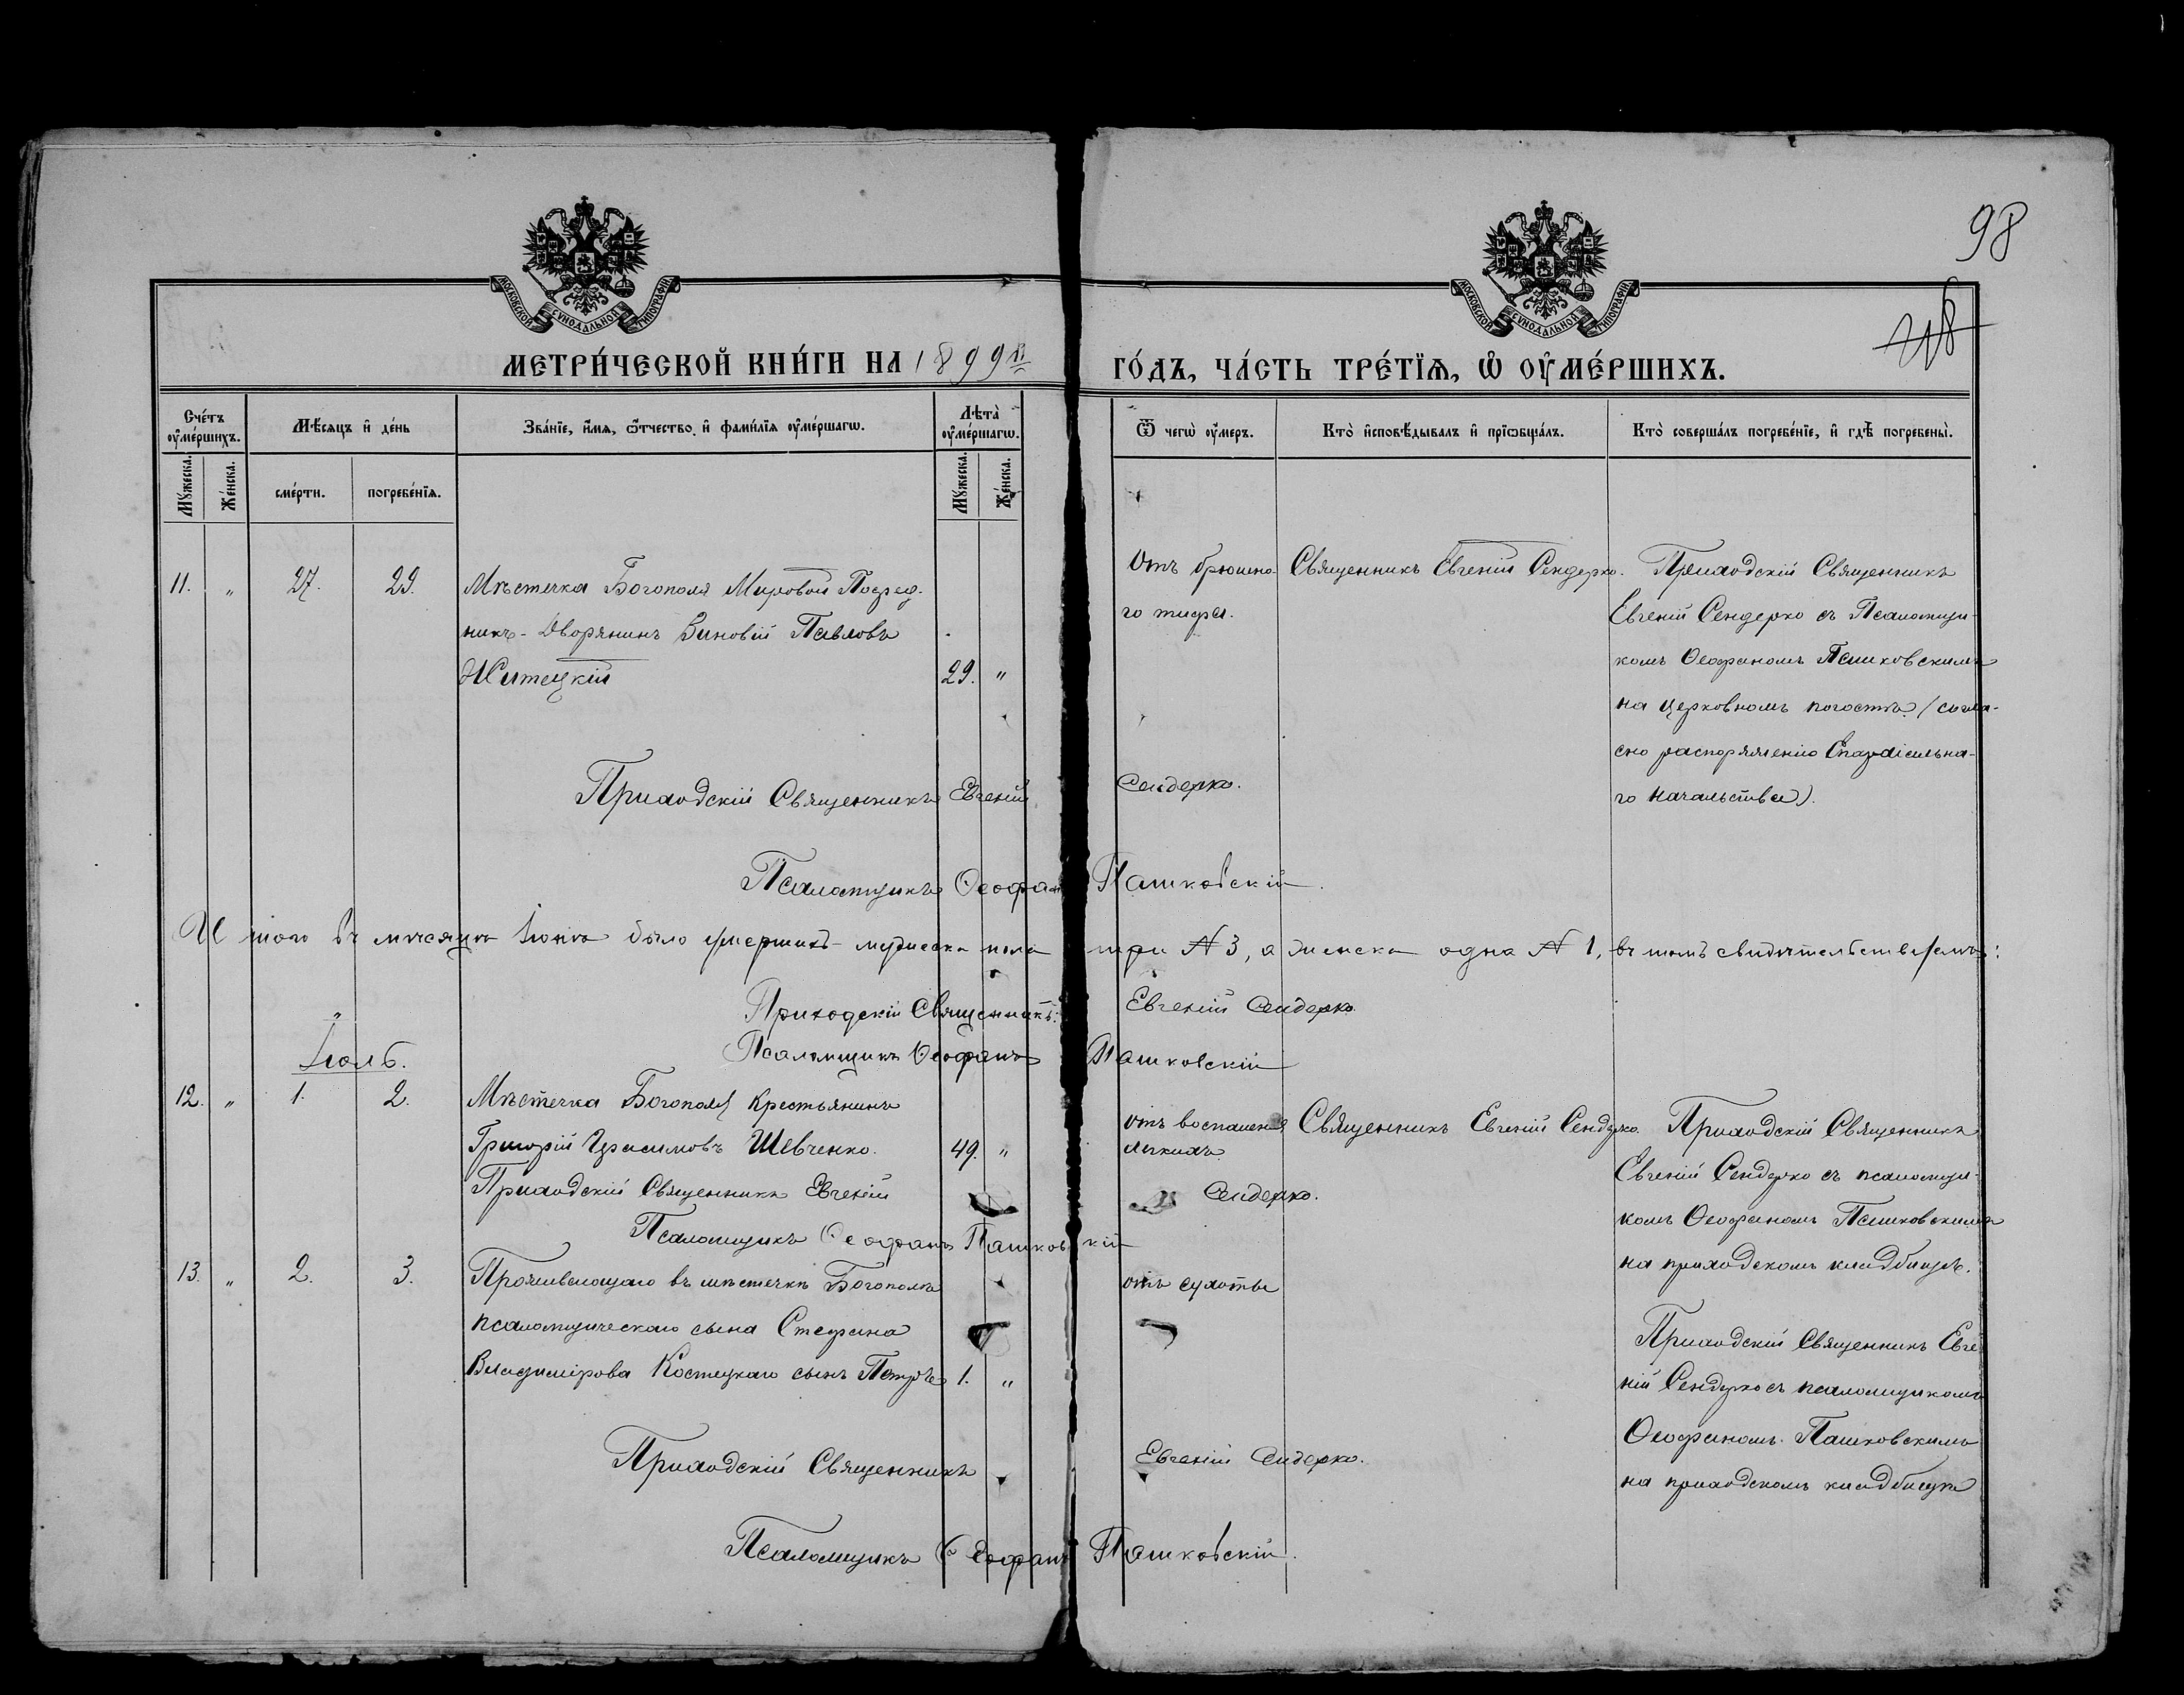 98
МОСКОВСКОЙ СѴНОДАЛЬНОЙ ТИПОГРАФІИ
МОСКОВСКОЙ СѴНОДАЛЬНОЙ ТИПОГРАФІИ
МЕТРИ́ЧЕСКОЙ КНИ́ГИ НА 1899й ГО́ДЪ, ЧА́СТЬ ТРЕ́ТЇѦ, Ѡ҆ ОУ҆МЕ́РШИХЪ.
Сче́тъ оу҆ме́ршихъ.
Мѣ́сѧцъ и҆ де́нь
Зва́нїе, и҆́мѧ, ѻ҆́тчество, и҆ фами́лїѧ оу҆ме́ршагѡ.
Лѣта̀ оу҆ме́ршагѡ.
Ѿ чегѡ̀ оу҆́меръ.
Кто̀ и҆сповѣ́дывалъ и҆ прїѡбща́лъ.
Кто̀ соверша́лъ погребе́нїе, и҆ гдѣ̀ погребены̀.
Мꙋ́жеска.
Же́нска.
сме́рти.
погребе́нїѧ.
Мꙋ́жеска.
Же́нска.
11. „ 27. 29. Мѣстечка Богополя Мировой Посред-
никъ - Дворянинъ Зиновій Павловъ
Житецкій 29. „
Отъ брюшна-
го тифа.
Священникъ Евгеній Сендерко.
Приходскій Священникъ
Евгеній Сендерко съ Псаломщи-
комъ Ѳеофаномъ Пашковскимъ
на церковномъ погостѣ (согла-
сно распоряженію Епархіальна-
го Начальства).
Приходскій Священникъ Евгеній Сендерко.
Псаломщикъ Ѳеофанъ Пашковскій.
И того въ мѣсяцѣ Іюнѣ было умершихъ - мужеска пола три № 3, а женска одна № 1, въ томъ свидѣтельствуемъ:
Приходскій Священникъ: Евгеній Сендерко
Псаломщикъ Ѳеофанъ Пашковскій
Іюль.
12. „ 1. 2. Мѣстечка Богополя крестьянинъ
Григорій Герасимовъ Шевченко. 49. „
отъ воспаленія
легкихъ.
Священникъ Евгеній Сендерко
Приходскій Священникъ
Евгеній Сендерко съ псаломщи-
комъ Ѳеофаномъ Пашковскимъ
на приходскомъ кладбищѣ.
Приходскій Священникъ Евгеній Сендерко.
Псаломщикъ Ѳеофанъ Пашковскій
13. „ 2. 3. Проживающаго въ мѣстечкѣ Богополѣ
псаломщическаго сына Стефана
Владимірова Костецкаго сынъ Петръ 1. „
отъ сухоты
Приходскій Священникъ Евге
ній Сендерко съ псаломщикомъ
Ѳеофаномъ Пашковскимъ
на приходскомъ кладбищѣ
Приходскій Священникъ Евгеній Сендерко.
Псаломщикъ Ѳеофанъ Пашковскій.